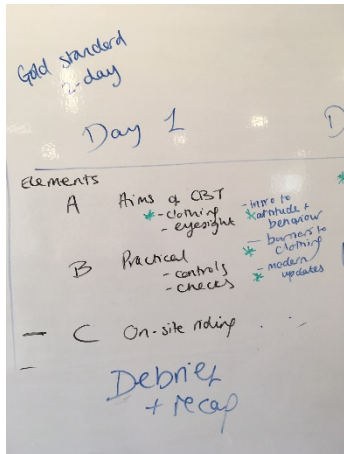 Gold standard
2-day
Day 1
D
Elements
A Aims of CBT
* - clothing
- eyesight
- Intro to
* attitude +
behaviour
- barriers to
* clothing
- modern
* updates
B Practical
- controls
- checks
- C On-site riding
-
Debrief
+ recap